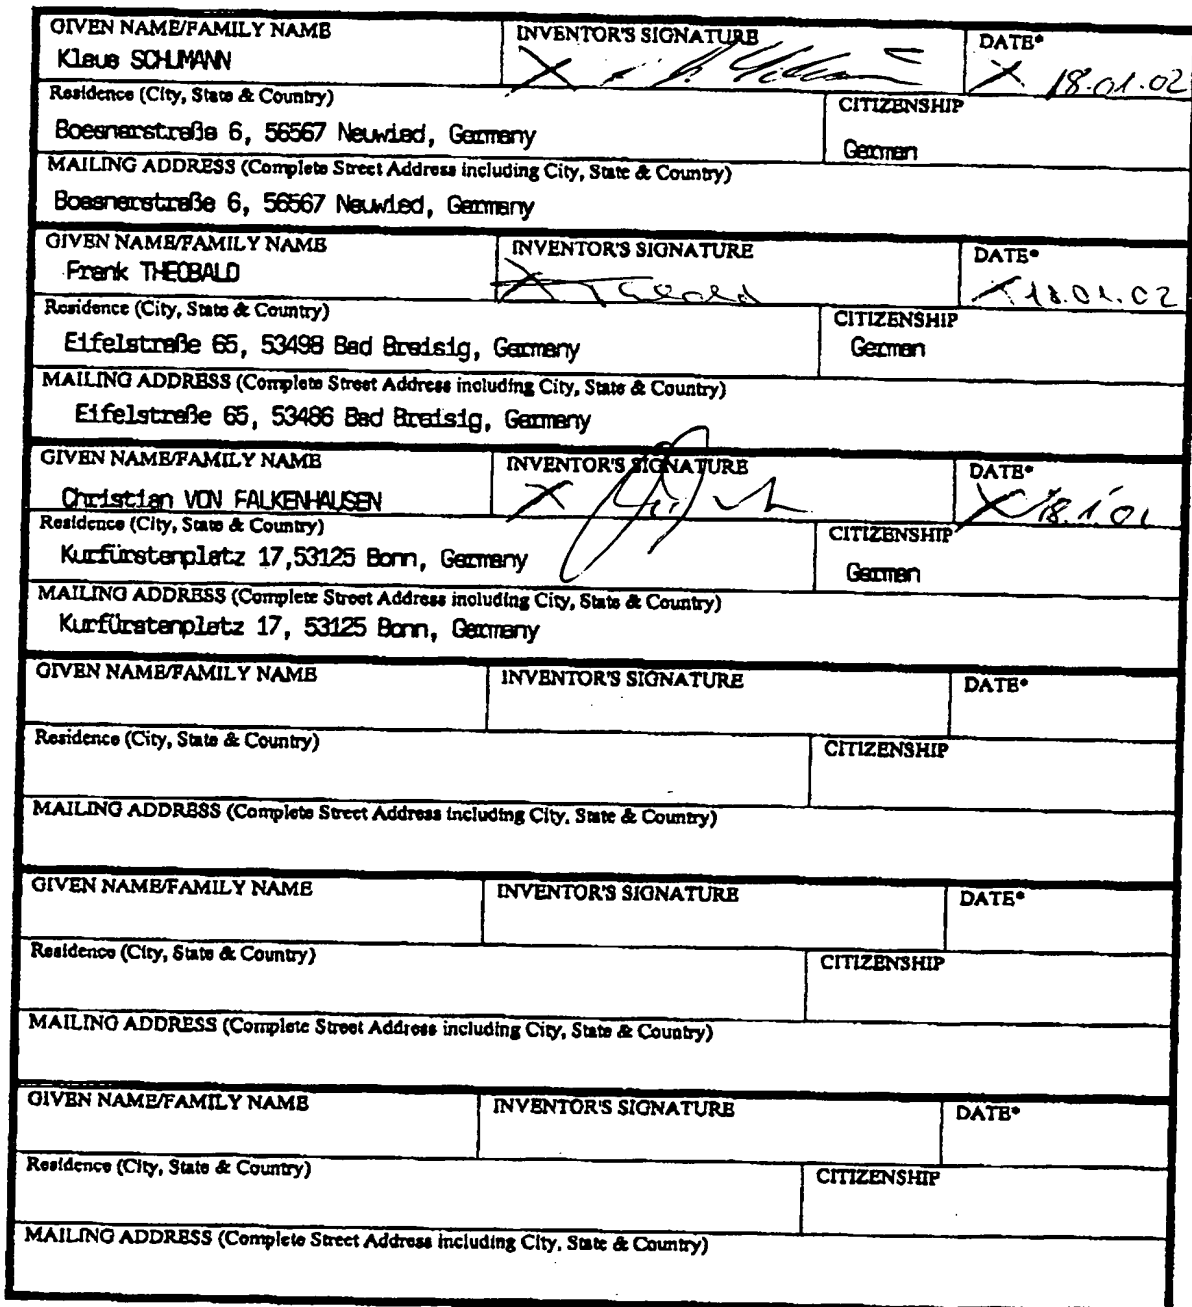 GIVEN NAME/FAMILY NAME INVENTOR'S SIGNATURE DATE*
Klaus SCHUMANN X X 18.01.02
Residence (City, State & Country) CITIZENSHIP
Boesnerstraße 6, 56567 Neuwied, Germany German
MAILING ADDRESS (Complete Street Address including City, State & Country)
Boesnerstraße 6, 56567 Neuwied, Germany
GIVEN NAME/FAMILY NAME INVENTOR'S SIGNATURE DATE*
Frank THEOBALD X X 18.01.02
Residence (City, State & Country) CITIZENSHIP
Eifelstraße 65, 53498 Bad Breisig, Germany German
MAILING ADDRESS (Complete Street Address including City, State & Country)
Eifelstraße 65, 53486 Bad Breisig, Germany
GIVEN NAME/FAMILY NAME INVENTOR'S SIGNATURE DATE*
Christian VON FALKENHAUSEN X X 18.1.01
Residence (City, State & Country) CITIZENSHIP
Kurfürstenplatz 17,53125 Bonn, Germany German
MAILING ADDRESS (Complete Street Address including City, State & Country)
Kurfürstenplatz 17, 53125 Bonn, Germany
GIVEN NAME/FAMILY NAME INVENTOR'S SIGNATURE DATE*
Residence (City, State & Country) CITIZENSHIP
MAILING ADDRESS (Complete Street Address including City, State & Country)
GIVEN NAME/FAMILY NAME INVENTOR'S SIGNATURE DATE*
Residence (City, State & Country) CITIZENSHIP
MAILING ADDRESS (Complete Street Address including City, State & Country)
GIVEN NAME/FAMILY NAME INVENTOR'S SIGNATURE DATE*
Residence (City, State & Country) CITIZENSHIP
MAILING ADDRESS (Complete Street Address including City, State & Country)